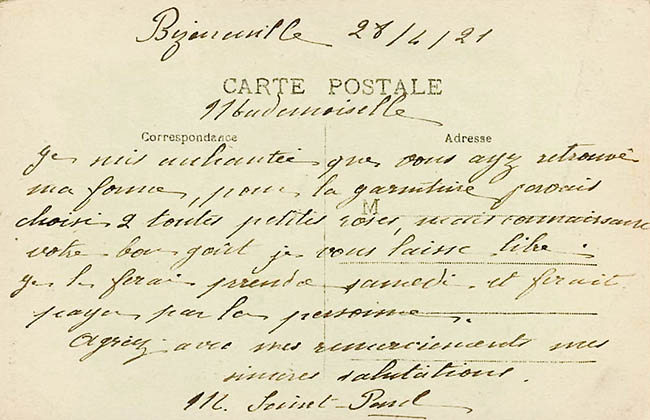 28/4/21
CARTE POSTALE
Mademoiselle
Correspondance Adresse
Je suis enchantée que vous ayez retrouvé
ma forme, pour la garniture j'avais
M
choisi 2 toutes petites roses, mais connaissant
votre bon goût je vous laisse libre.
Je le ferai prendre samedi et ferait
payer par la personne.
Agréez avec mes remerciements mes
sincères salutations.
M. Saint-Paul